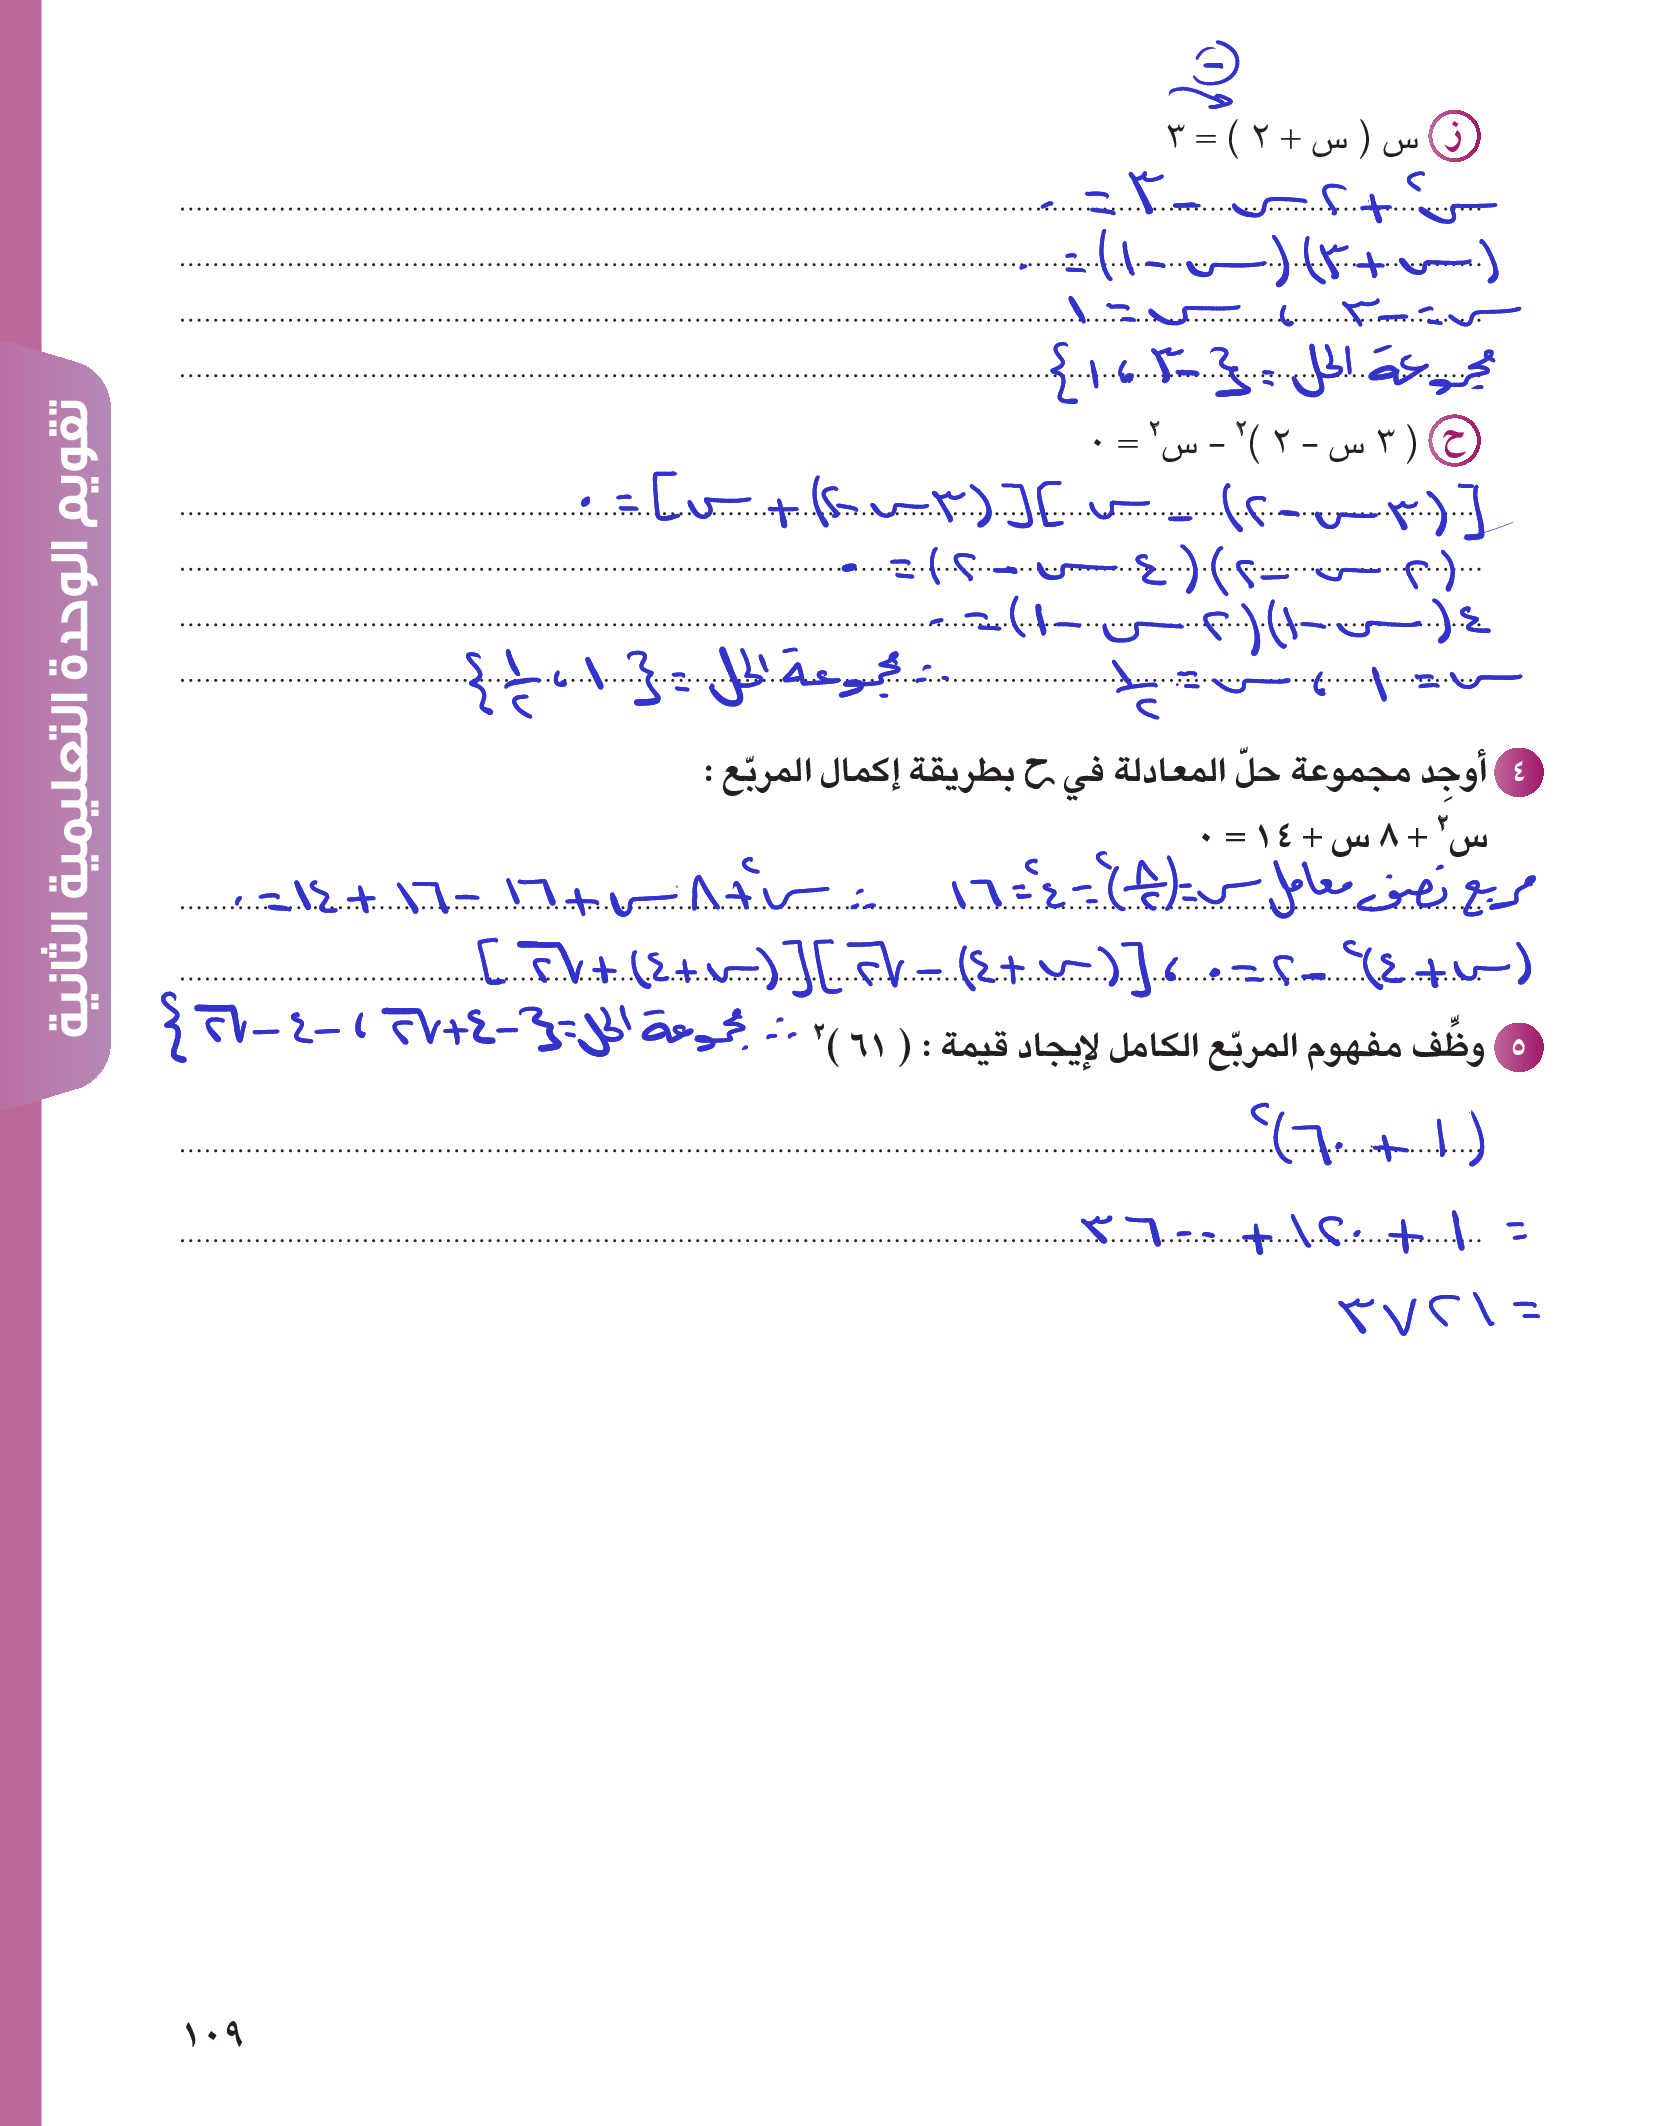 −
ز س ( س + ٢ ) = ٣
س² + ٢ س − ٣ = ٠
(س + ٣)(س − ١) = ٠
س = −٣ ، س = ١
مجموعة الحل = {−٣ ، ١}
ح ( ٣ س − ٢ )² − س² = ٠
[(٣ س − ٢) − س][(٣ س − ٢) + س] = ٠
(٢ س − ٢)(٤ س − ٢) = ٠
٤(س − ١)(٢ س − ١) = ٠
س = ١ ، س = ١/٢ ∴ مجموعة الحل = {١ ، ١/٢}
٤ أوجِد مجموعة حلّ المعادلة في ح بطريقة إكمال المربّع :
س² + ٨ س + ١٤ = ٠
مربع نصف معامل س = (٨/٢)² = ٤² = ١٦ ∴ س² + ٨ س + ١٦ − ١٦ + ١٤ = ٠
(س + ٤)² − ٢ = ٠ ، [(س + ٤) − √٢][(س + ٤) + √٢]
∴ مجموعة الحل = {−٤ + √٢ ، −٤ − √٢}
٥ وظِّف مفهوم المربّع الكامل لإيجاد قيمة : ( ٦١ )²
(١ + ٦٠)²
= ١ + ١٢٠ + ٣٦٠٠
= ٣٧٢١
تقويم الوحدة التعليمية الثانية
١٠٩